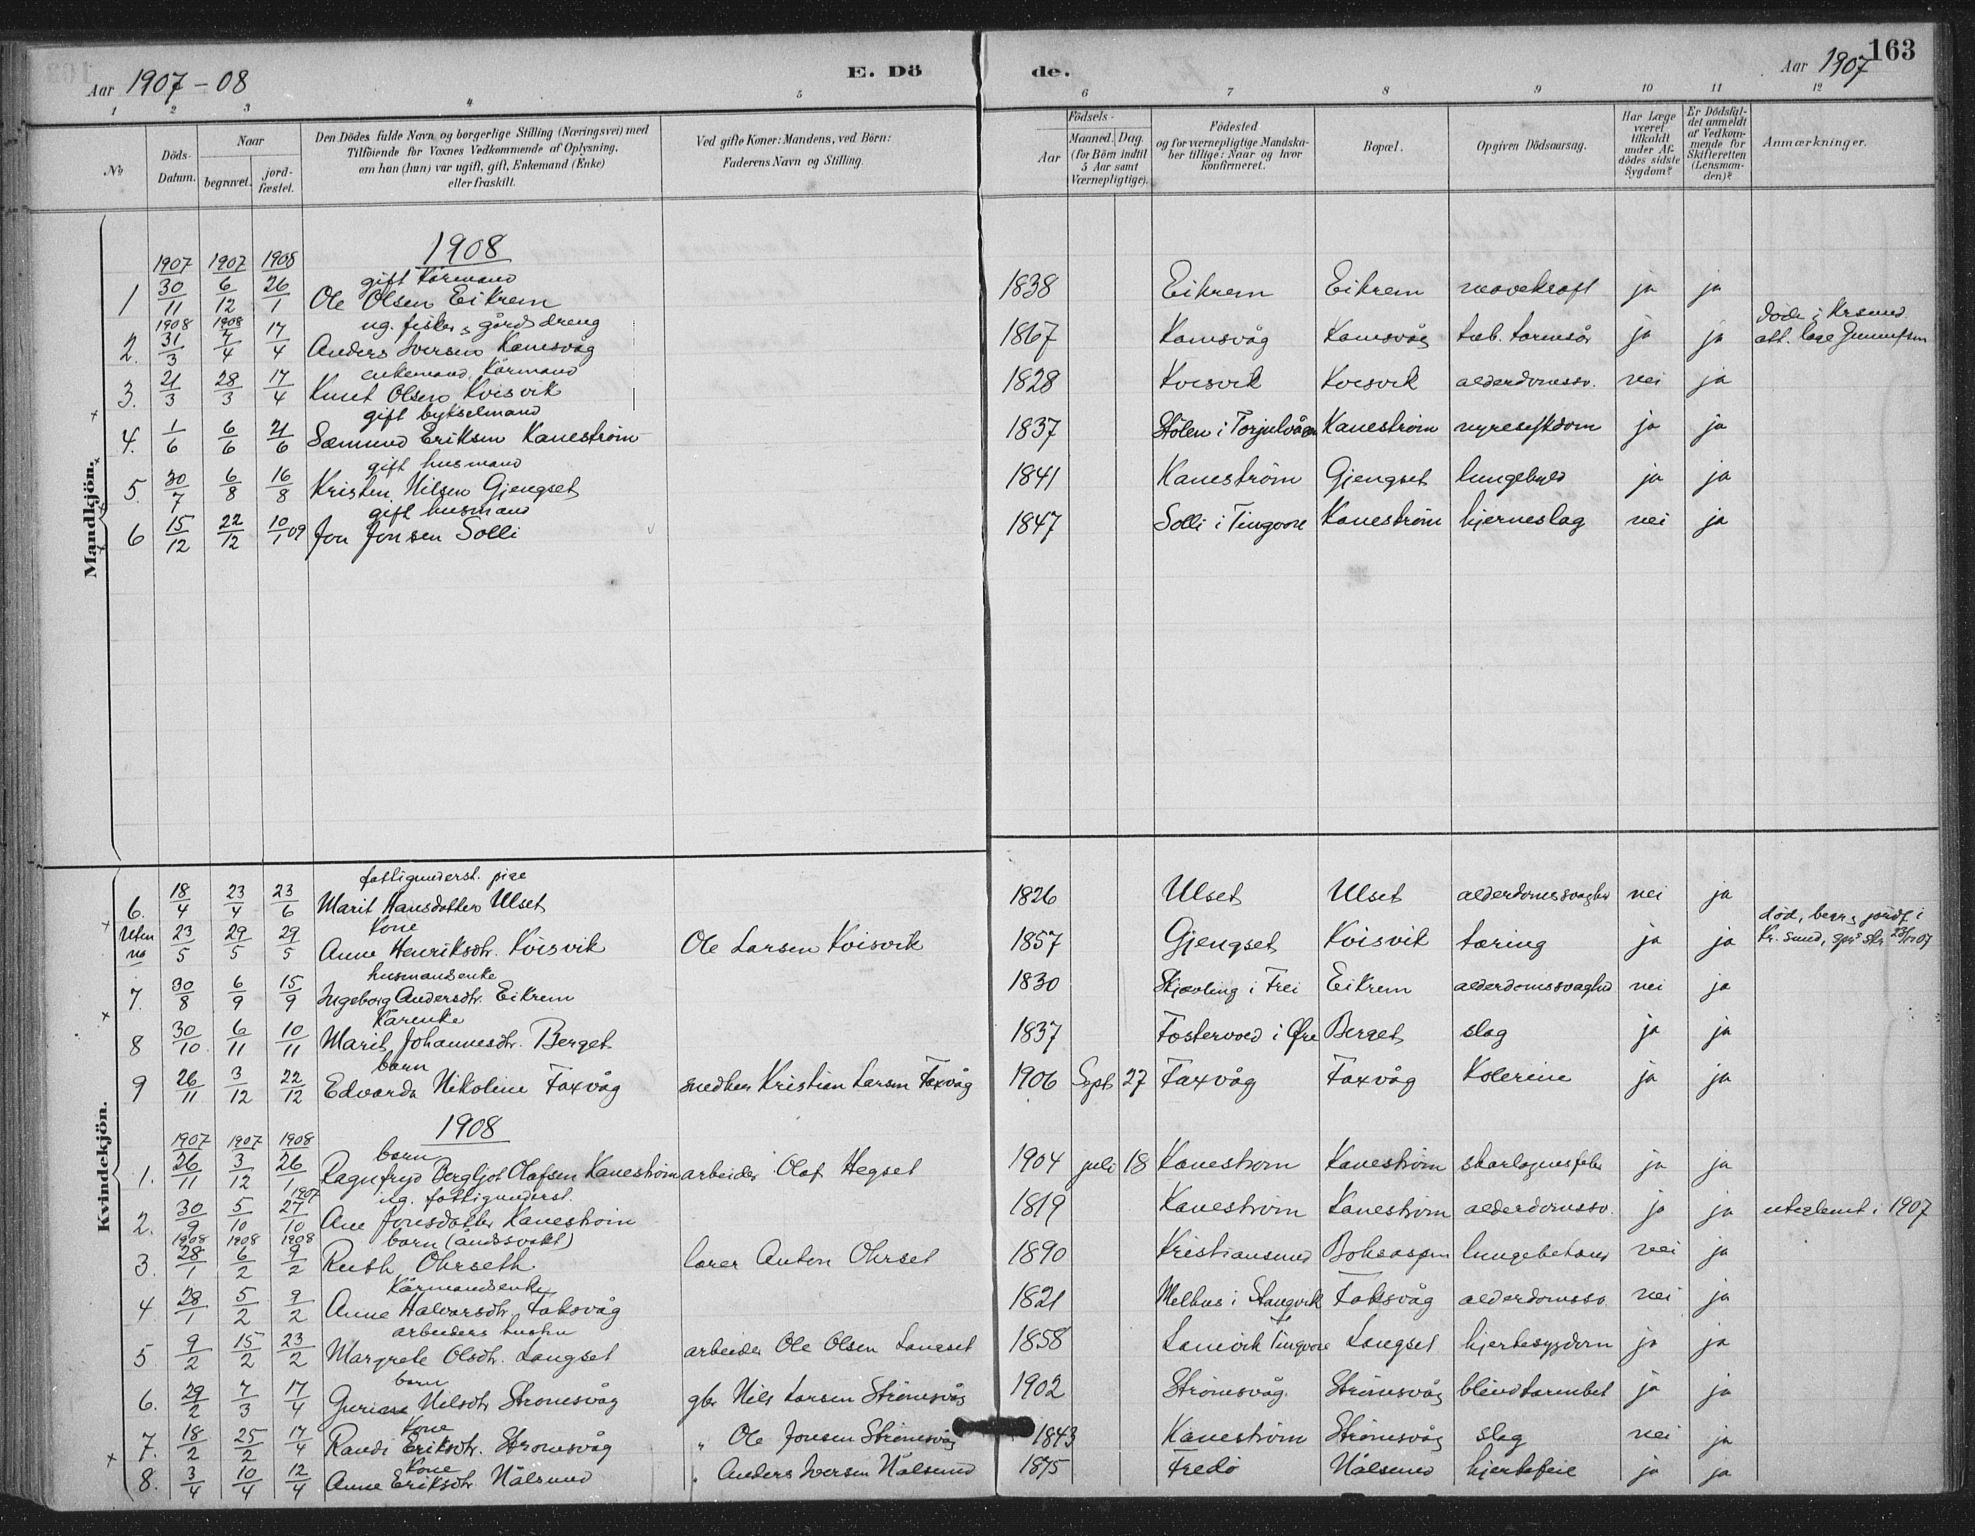 Aar 1907 - 08 E. Dö de. Aar 1907 163
1 2 3 4 5 6 7 8 9 10 11 12
No Döds-Datum. Naar begravet. jord-fæstet. Den Dödes fulde Navn og borgerlige Stilling (Næringsvei) med Tilföiende for Voxnes Vedkommende af Oplysning, om han (hun) var ugift, gift, Enkemand (Enke) eller fraskilt. Ved gifte Koner: Mandens, ved Börn: Faderens Navn og Stilling. Födsels- Aar Maaned. Dag. (for Börn indtil 5 Aar samt Værnepligtige). Födested og for værnepligtige Mandskaber tillige: Naar og hvor konfirmeret. Bopæl. Opgiven Dödsaarsag. Har Læge været tilkaldt under Afdödes sidste Sygdom? Er Dödsfaldet anmeldt af Vedkommende for Skifteretten (Lensmanden)? Anmærkninger.
Mandkjön.
1908
1907 1907 1908
gift Kårmand
1 30/11 6/12 26/1 Ole Olsen Eikrem 1838 Eikrem Eikrem mavekræft ja ja
1908 1908 ug. fisker, gårdsdreng
2. 31/3 7/4 17/4 Anders Iversen Kamsvåg 1867 Kamsvåg Kamsvåg tub. tarmsår ja ja døde i Krsund
enkemand. Kårmand
3. 21/3 28/3 17/4 Knut Olsen Kvisvik 1828 Kvisvik Kvisvik alderdomssv. nei ja
gift bykselmand
4. 1/6 6/6 21/6 Sæmund Eriksen Kanestrøm 1837 Stölen i Torjulvåen Kanestrøm nyresygdom ja ja
gift husmand
5. 30/7 6/8 16/8 Kristen Nilsen Gjengset 1841 Kanestrøm Gjengset lungebyld ja ja
gift husmand
6 15/12 22/12 10/1 09 Jon Jonsen Solli 1847 Solli i Tingvoll Kanestrøm hjerneslag nei ja
Kvindekjön.
fattigunderst. pige
6. 18/4 23/4 23/6 Marit Hansdatter Ulset 1826 Ulset Ulset alderdomssvaghed nei ja
Kone
Uten no 23/5 29/5 29/5 Anne Henriksdtr. Kvisvik Ole Larsen Kvisvik 1857 Gjengset Kvisvik tæring ja ja død, begr. jordf. i Kr.sund
husmandsenke
7. 30/8 6/9 15/9 Ingeborg Andersdtr. Eikrem 1830 Skjevling i Frei Eikrem alderdomssvaghed nei ja
Kårenke
8 30/10 6/11 10/11 Marit Johannesdtr. Berget 1837 Fostervold i Øre Berget slag ja ja
barn
9 26/11 3/12 22/12 Edvarda Nikoline Faxvåg snedker Kristian Larsen Faxvåg 1906 Sept. 27 Faxvåg Faxvåg Kolerine ja ja
1908
1907 1907 1908 barn
1. 26/11 3/12 26/1 Ragnfryd Bergljot Olafsen Kanestrøm arbeider Olaf Hegset 1904 juli 18 Kanestrøm Kanestrøm skarlagensfeber ja ja
1907 ug. fattigunderst.
2. 30/9 5/10 27/10 Ane Jonsdatter Kanestrøm 1819 Kanestrøm Kanestrøm alderdomssv. ja ja uteglemt i 1907
1908 1908 1908 barn (åndssvakt)
3. 28/1 6/2 9/2 Ruth Ohrseth lærer Anton Ohrset 1890 Kristiansund nei ja
Kårmandsenke
4. 28/1 5/2 9/2 Anne Halvorsdtr. Faksvåg 1821 Melhus i Stangvik Faksvåg alderdomssv. nei ja
arbeiders hustru
5. 9/2 15/2 23/2 Margrete Olsdtr. Langset arbeider Ole Olsen Langset 1858 Tingvoll Langset hjertesygdom ja ja
barn
6. 29/2 7/3 17/4 Nilsdtr Strømsvåg gbr. Nils Larsen Strømsvåg 1902 Strømsvåg Strømsvåg blindtarmbet. ja ja
Kone
7. 18/2 25/2 17/4 Randi Eriksdtr. Strømsvåg " Ole Jonsen Strømsvåg 1843 Kanestrøm Strømsvåg slag nei ja
Kone
8. 3/4 10/4 12/4 Anne Eriksdtr. Nålsund " Anders Iversen Nålsund 1875 Fredø Nålsund hjertefeil ja ja